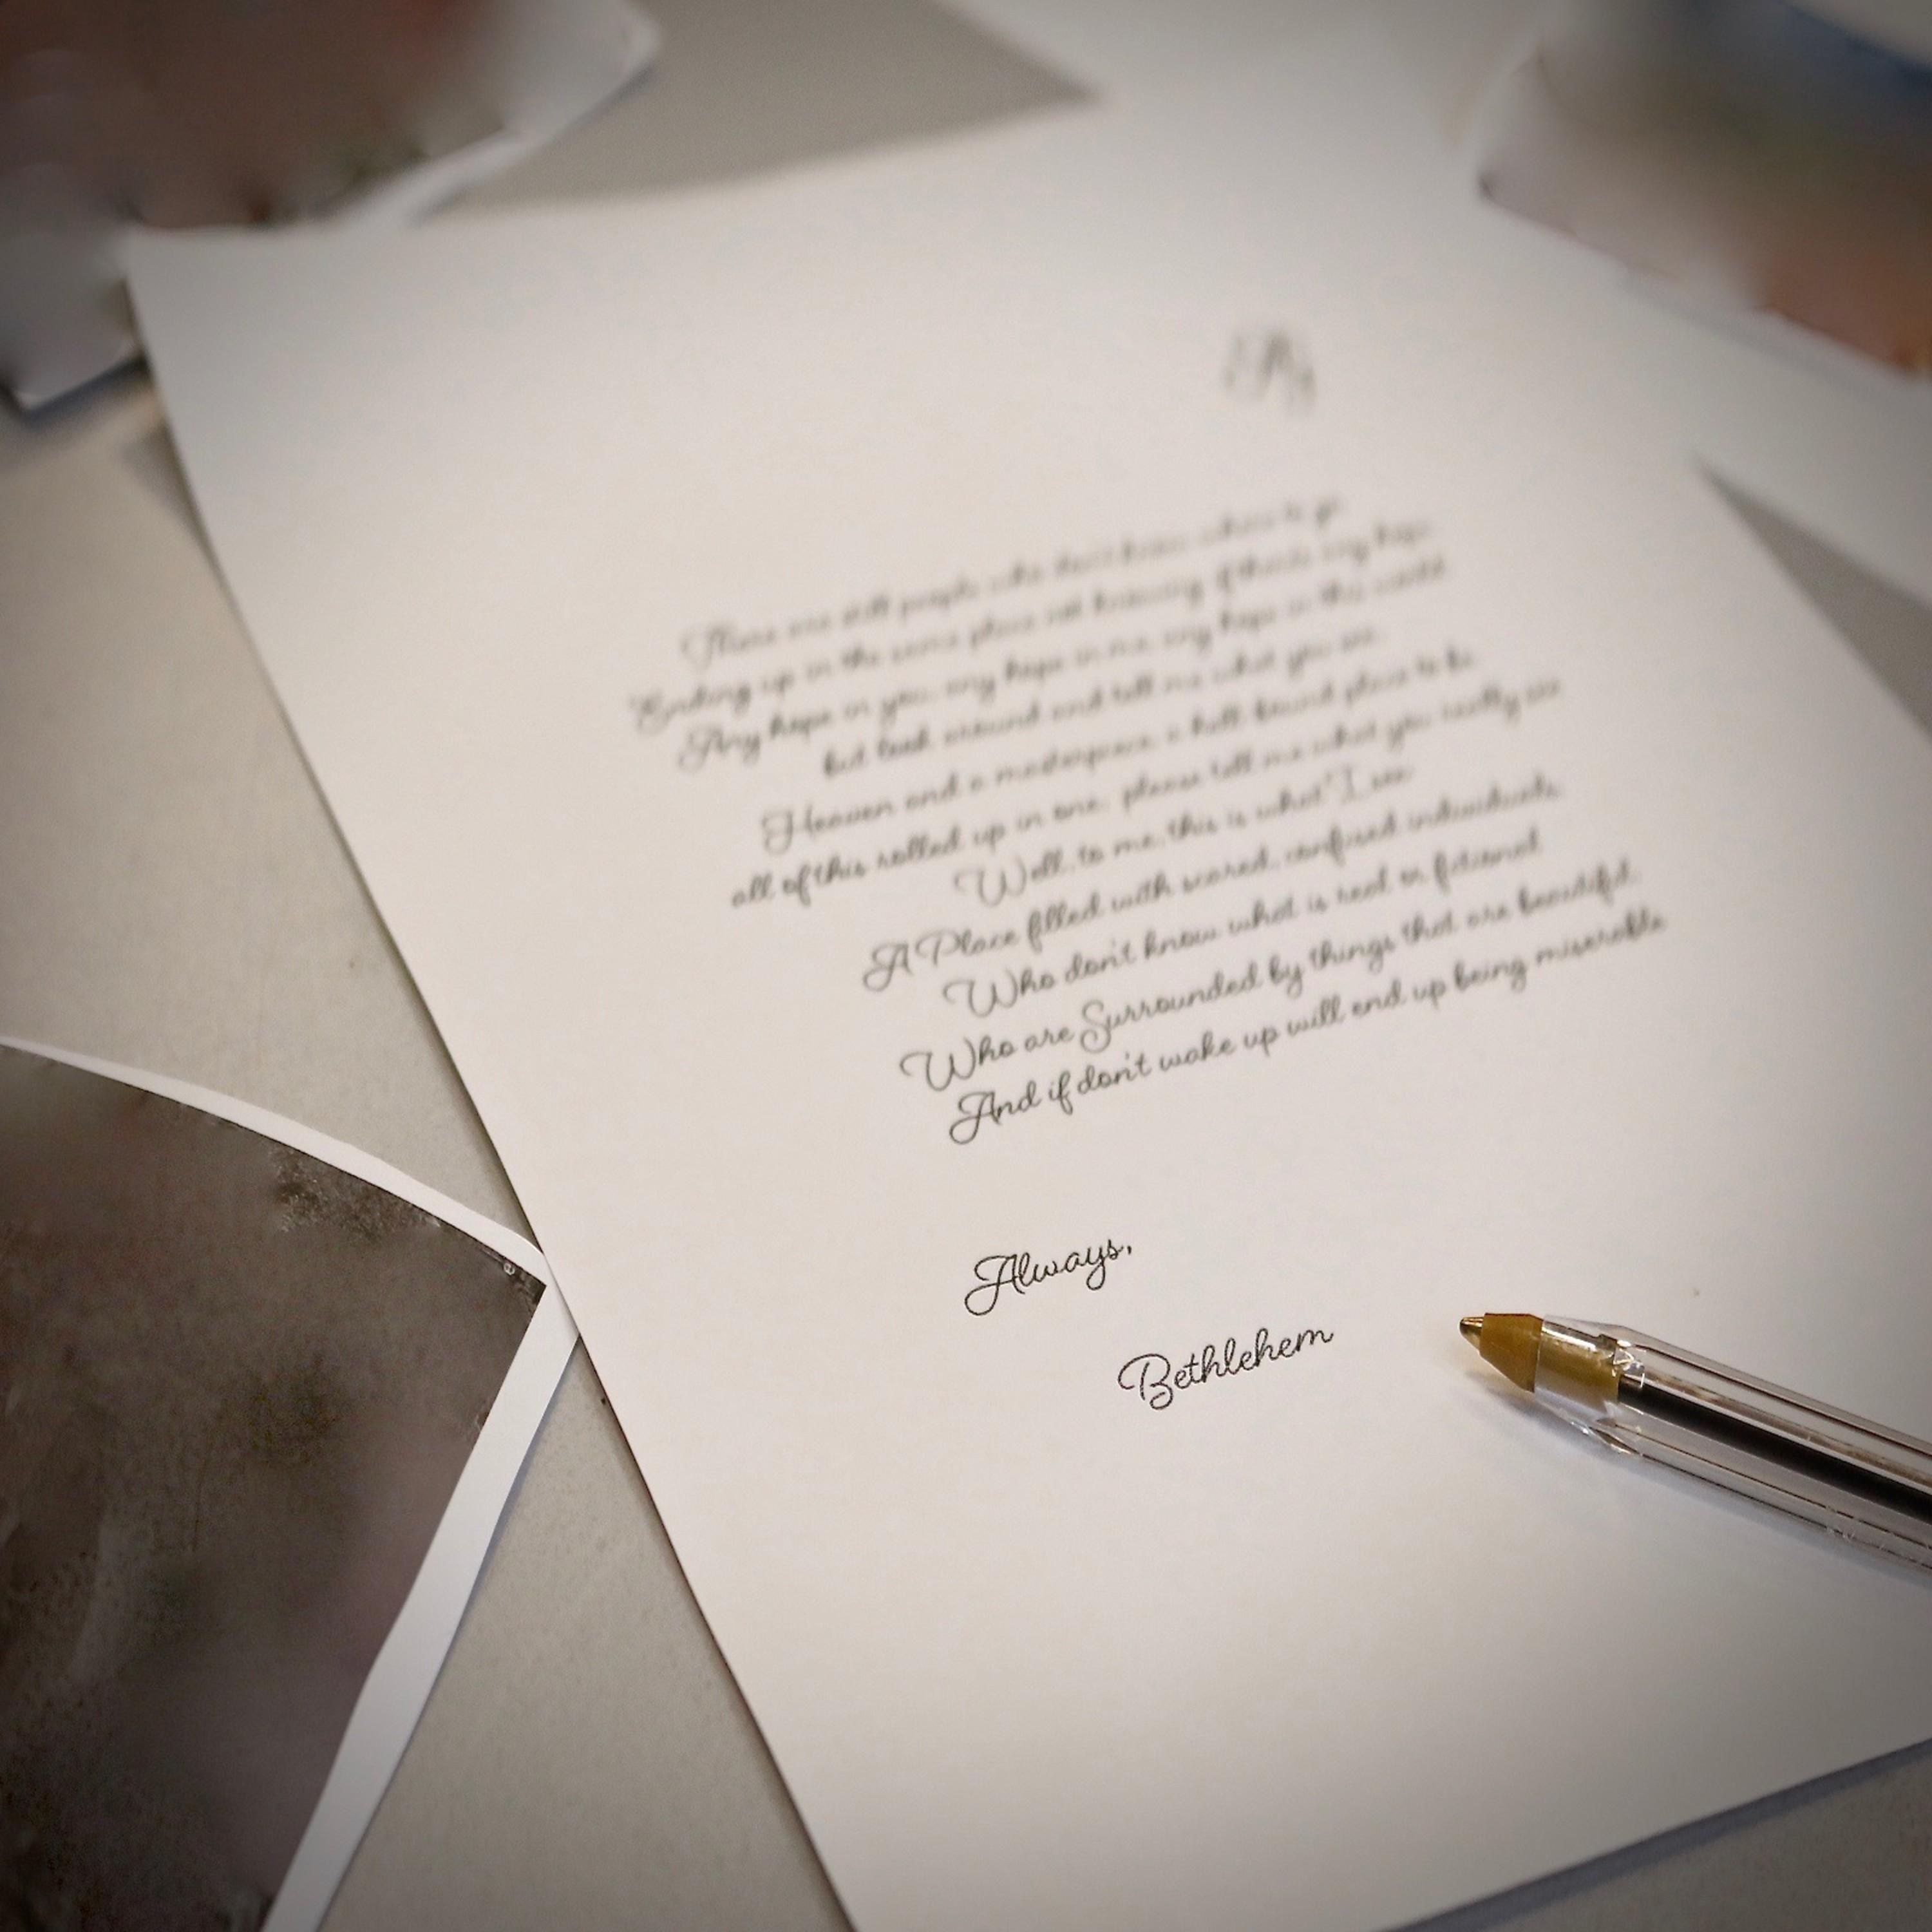 There are still people who don't know where to go
Ending up in the same place not knowing if there's any hope
Any hope in you, any hope in me, any hope in this world
but look around and tell me what you see
Heaven and a masterpiece, a hell-bound place to be
all of this rolled up in one, please tell me what you really see
Well, to me, this is what I see
A Place filled with scared, confused individuals
Who don't know what is real or fictional
Who are Surrounded by things that are beautiful
And if don't wake up will end up being miserable
Always,
Bethlehem